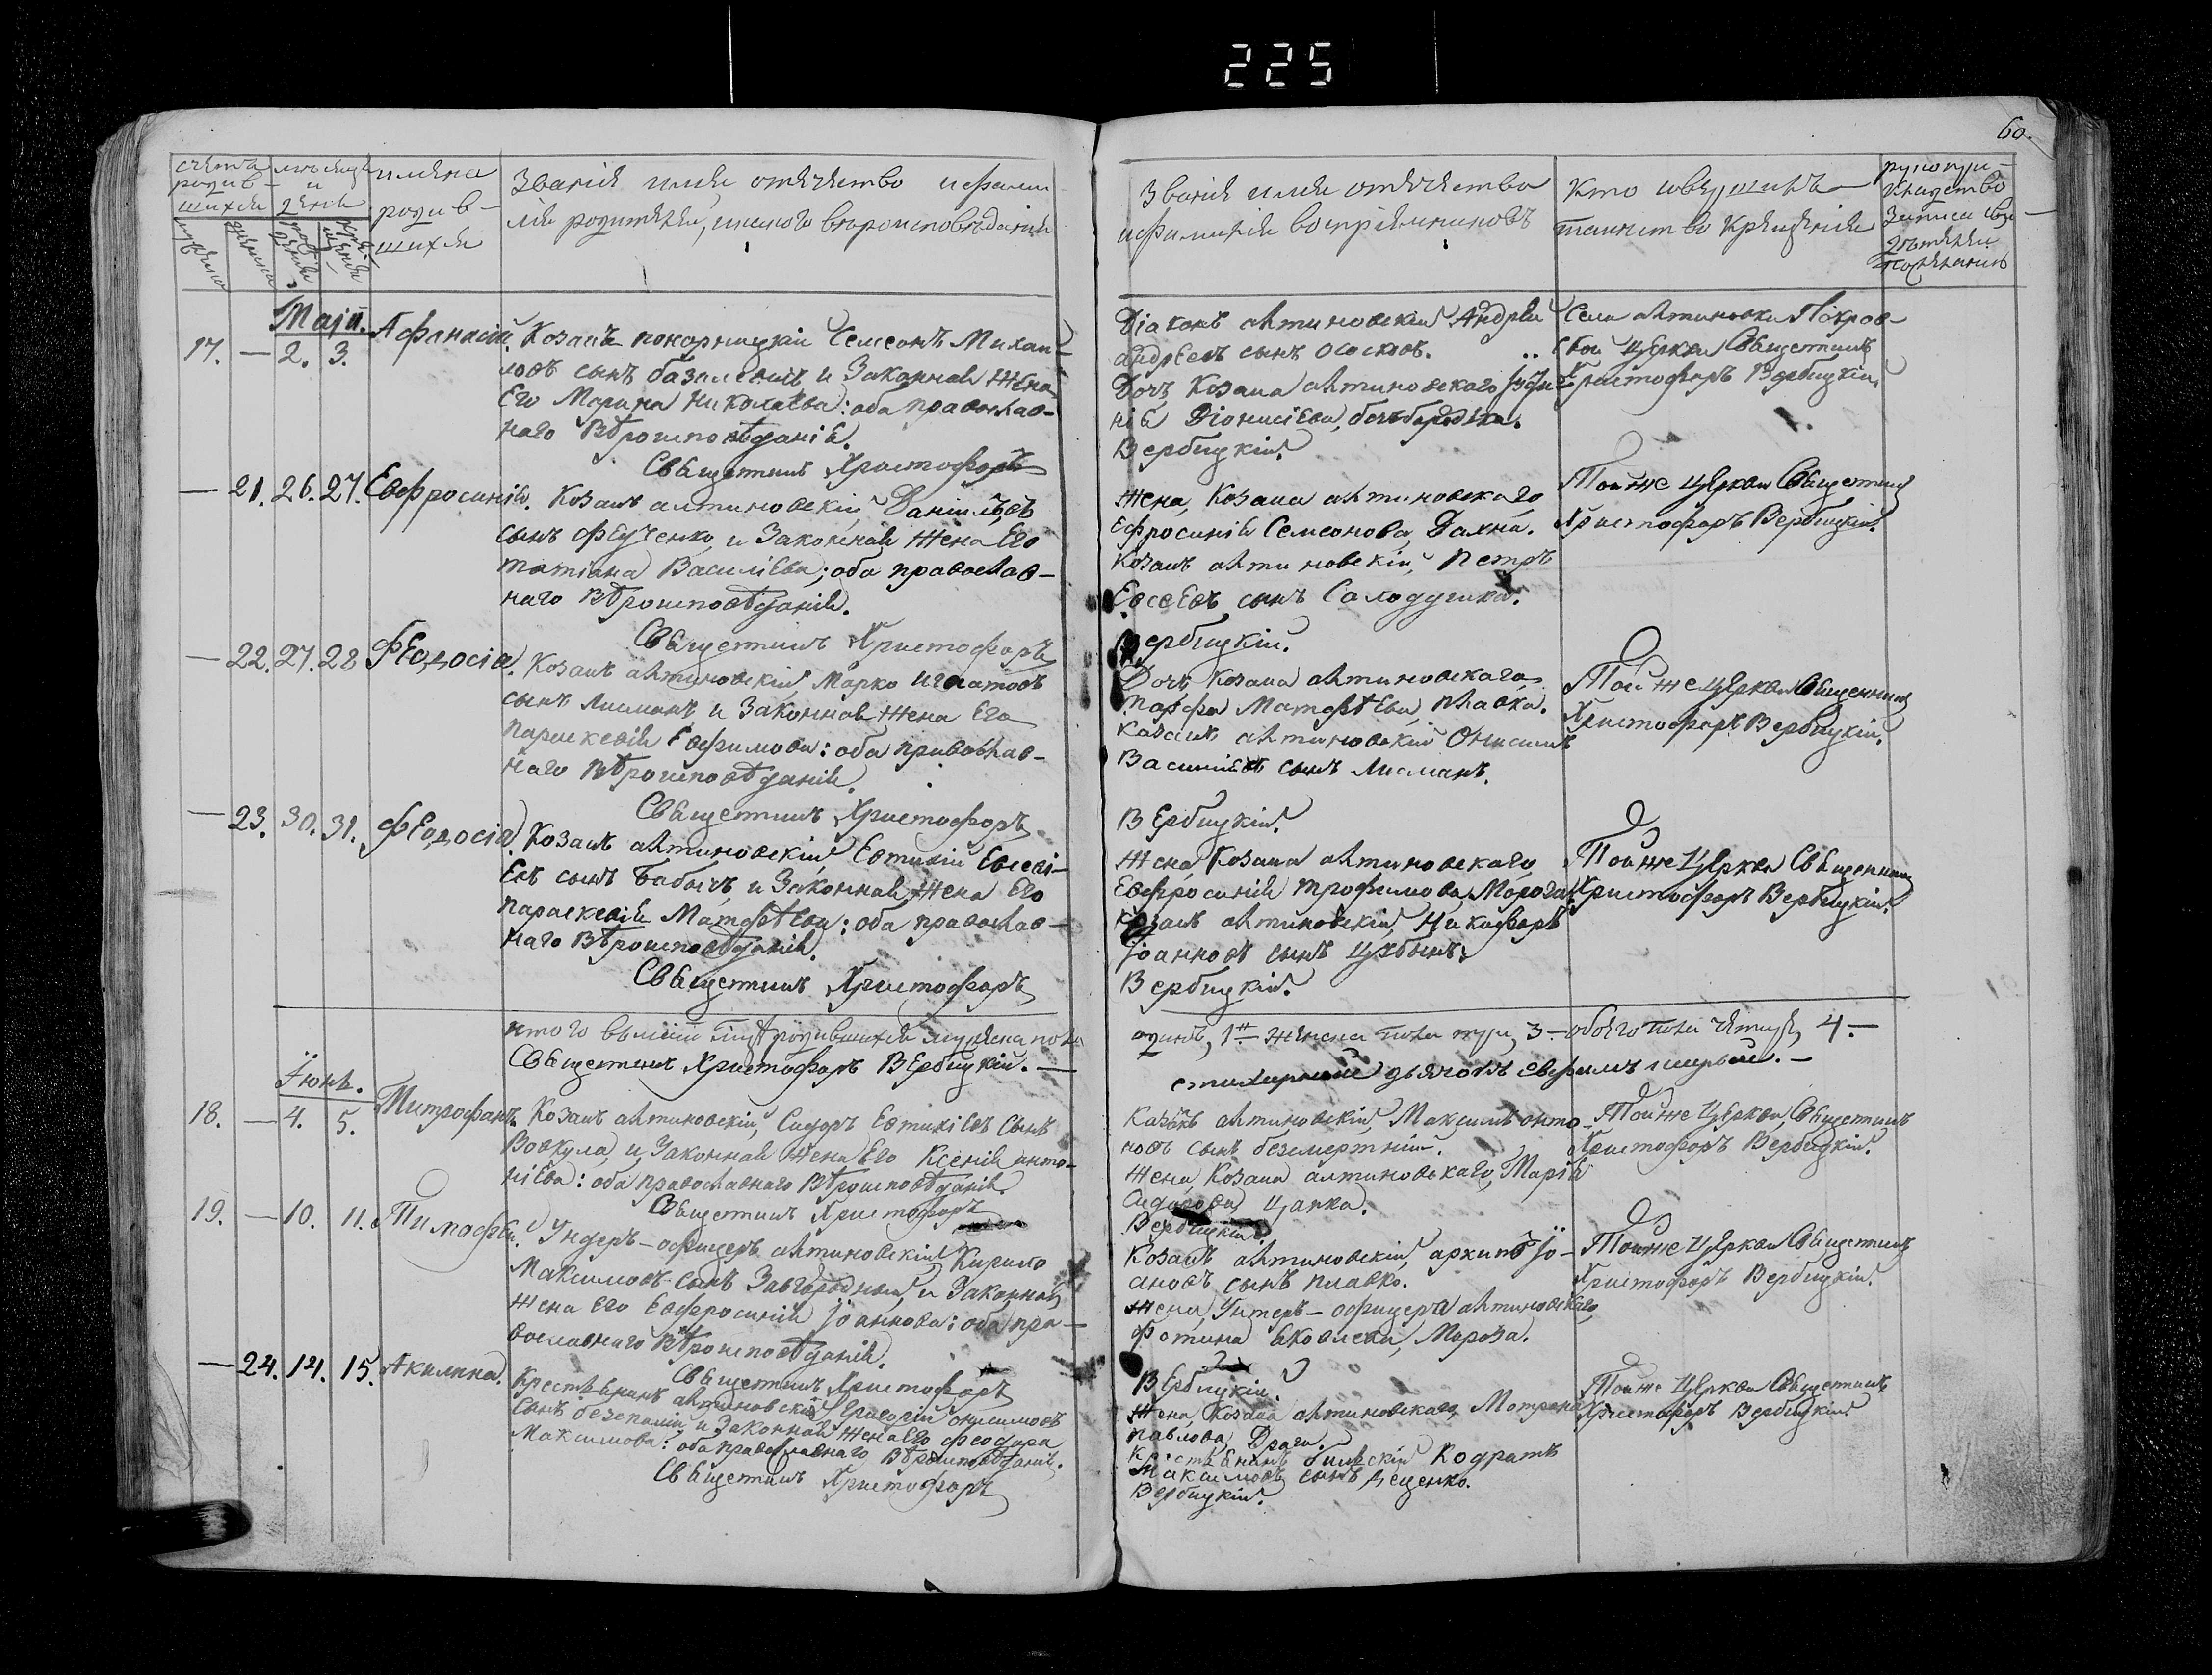 225
60.
счетъ родив- шихся
мѣсяцъ и день
имена родив- шихся
Званія имя отечество и фами-
лія родителей, и какого вѣроисповѣданія
Званія имя отечество
и фамилія воспріемниковъ
Кто совершилъ
таинство Крещенія
Маія.
17. — 2. 3. Афанасій.
Козакъ понорницкій Семеонъ Михаи-
ловъ сынъ базилевичъ и Законная Жена
Его Марина Николаева: оба православ-
наго Вѣроисповѣданія.
Священникъ Христофоръ
Діаконъ алтиновскій Андрей
андреевъ сынъ Ососковъ.
Дочь Козака алтиновскаго
Діонисіева,
Вербицкій.
Села алтиновки Покров-
ской Церкви Священникъ
Христофоръ Вербицкій.
— 21. 26. 27. Евфросинія.
Козакъ алтиновскій, Даніилъ
сынъ Феученко, и Законная Жена Его
татіана Василіева; оба православ-
наго Вѣроисповѣданія.
Священникъ Христофоръ
Жена, Козака алтиновскаго
Ефросинія Семеонова,
Козакъ алтиновскій, Петръ
Евсеевъ сынъ Солодушка.
Вербицкій.
Тойже Церкви Священникъ
Христофоръ Вербицкій.
— 22. 27. 28 Феодосіа.
Козакъ алтиновскій Марко Игнатовъ
сынъ Лисманъ, и Законная Жена Его
Параскевія Евфимова: оба православ-
наго Вѣроисповѣданія.
Священникъ Христофоръ
Дочь Козака алтиновскаго
Матфѣева, плавка.
Козакъ алтиновскій Онисимъ
Василіевъ сынъ Лисманъ.
Вербицкій.
Тойже Церкви Священникъ
Христофоръ Вербицкій.
— 23. 30. 31. Феодосіа.
Козакъ алтиновскій Евтихій Евсеві-
евъ сынъ Бабичъ, и Законная Жена Его
Параскевія Матфѣева: оба православ-
наго Вѣроисповѣданія.
Священникъ Христофоръ
Жена Козака алтиновскаго
Евфросинія трофимова,
Козакъ алтиновскій, Никифоръ
Іоанновъ сынъ
Вербицкій.
Тойже Церкви Священникъ
Христофоръ Вербицкій.
итого родившихся мужеска пола
Священникъ Христофоръ Вербицкій. —
одинъ, 1 — женска пола три, 3 — обоего пола четыре, 4. —
стихарный дьячокъ Евфимъ
Іюнь.
18. — 4. 5. Митрофанъ.
Козакъ алтиновскій, Сидоръ Евтихіевъ сынъ
Вовкула, и Законная Жена Его Ксенія анто-
ніева: оба православнаго Вѣроисповѣданія.
Священникъ Христофоръ
Козакъ алтиновскій, Максимъ анто-
новъ сынъ безсмертній.
Жена, Козака алтиновскаго, Марія
Сидорова, Цапка.
Вербицкій
Тойже Церкви Священникъ
Христофоръ Вербицкій.
19. — 10. 11. Тимофей.
Ундеръ-офицеръ алтиновскій Кирило
Максимовъ сынъ Завгородный, и Законная
Жена Его Евфросинія Іоаннова: оба пра-
вославнаго Вѣроисповѣданія.
Священникъ Христофоръ
Козакъ алтиновскій, архипъ Іо-
ановъ, сынъ плавко.
Жена, Унтеръ-офицера алтиновскаго,
Фотина Мороза.
Вербицкій.
Тойже Церкви Священникъ
Христофоръ Вербицкій.
— 24. 14. 15. Акилина.
Крестьянинъ алтиновскій Григорій онисимовъ
сынъ безпалій, и Законная Жена Его Феодора
Максимова: оба православнаго Вѣроисповѣданія.
Священникъ Христофоръ
Жена, Козака алтиновскаго, Мотрона
Павлова, Драга.
Крестьянинъ Кодратъ
Максимовъ сынъ Деценко.
Вербицкій.
Тойже Церкви Священникъ
Христофоръ Вербицкій